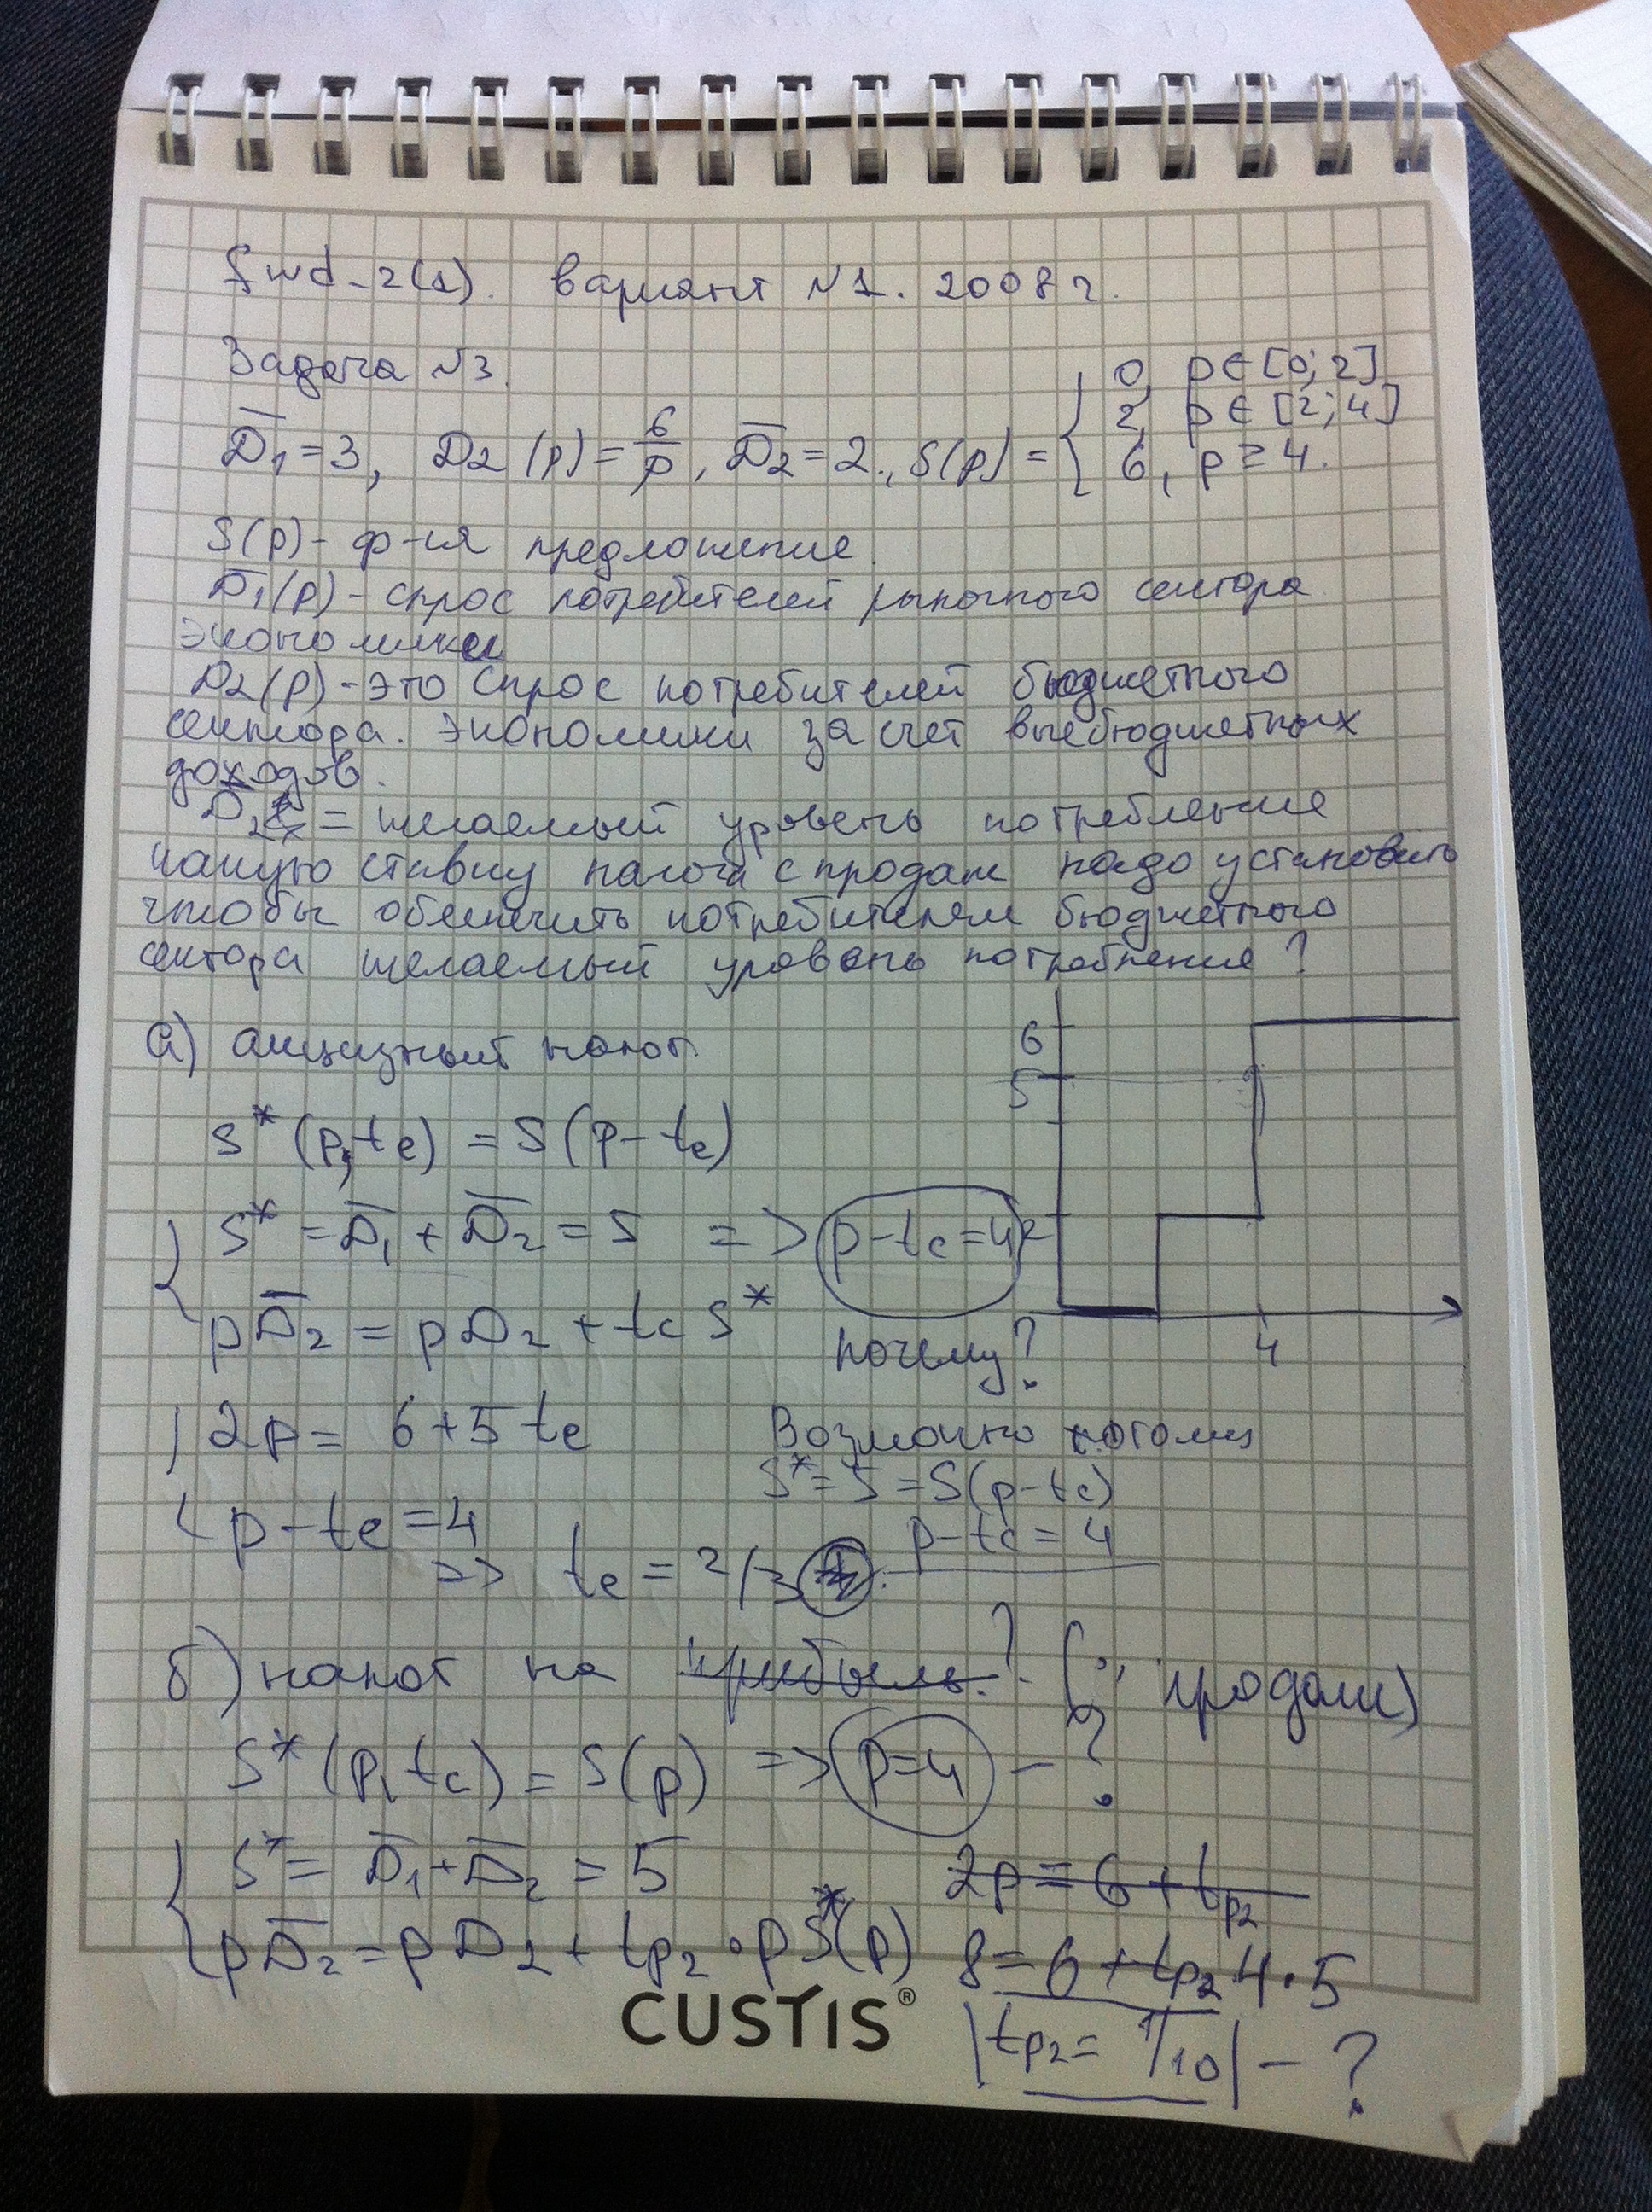 fwd-2(1). вариант №1. 2008г.
Задача №3.
D̅₁=3, D₂(p)=6/p, D̅₂=2., S(p)= { 0, p∈[0;2]
2, p∈[2;4]
6, p≥4.
S(p)- ф-ия предложение.
D̅₁(p)- спрос потребителей рыночного сектора
экономики
D₂(p)-это спрос потребителей бюджетного
сектора. экономики за счет внебюджетных
доходов.
D̅₂ = желаемый уровень потребление
какую ставку налога с продаж надо установить
чтобы обеспечить потребителям бюджетного
сектора желаемый уровень потребление?
а) акцизный налог.
S*(p,te) = S(p-te)
{ S* = D̅₁ + D̅₂ = 5 => p-te=4
pD̅₂ = pD₂ + te S*
почему?
6
5
2
4
{ 2p = 6+5te
p-te=4
=> te = 2/3
Возможно потому
S*=5=S(p-te)
p-te=4
б) налог на прибыль? (? продаж)
S*(p,te) = S(p) => p=4 - ?
{ S* = D̅₁+D̅₂ = 5
pD̅₂ = pD₂ + tp₂·pS*(p)
2p = 6 + tp₂
8=6+tp₂4·5
|tp₂= 1/10| - ?
CUSTIS®